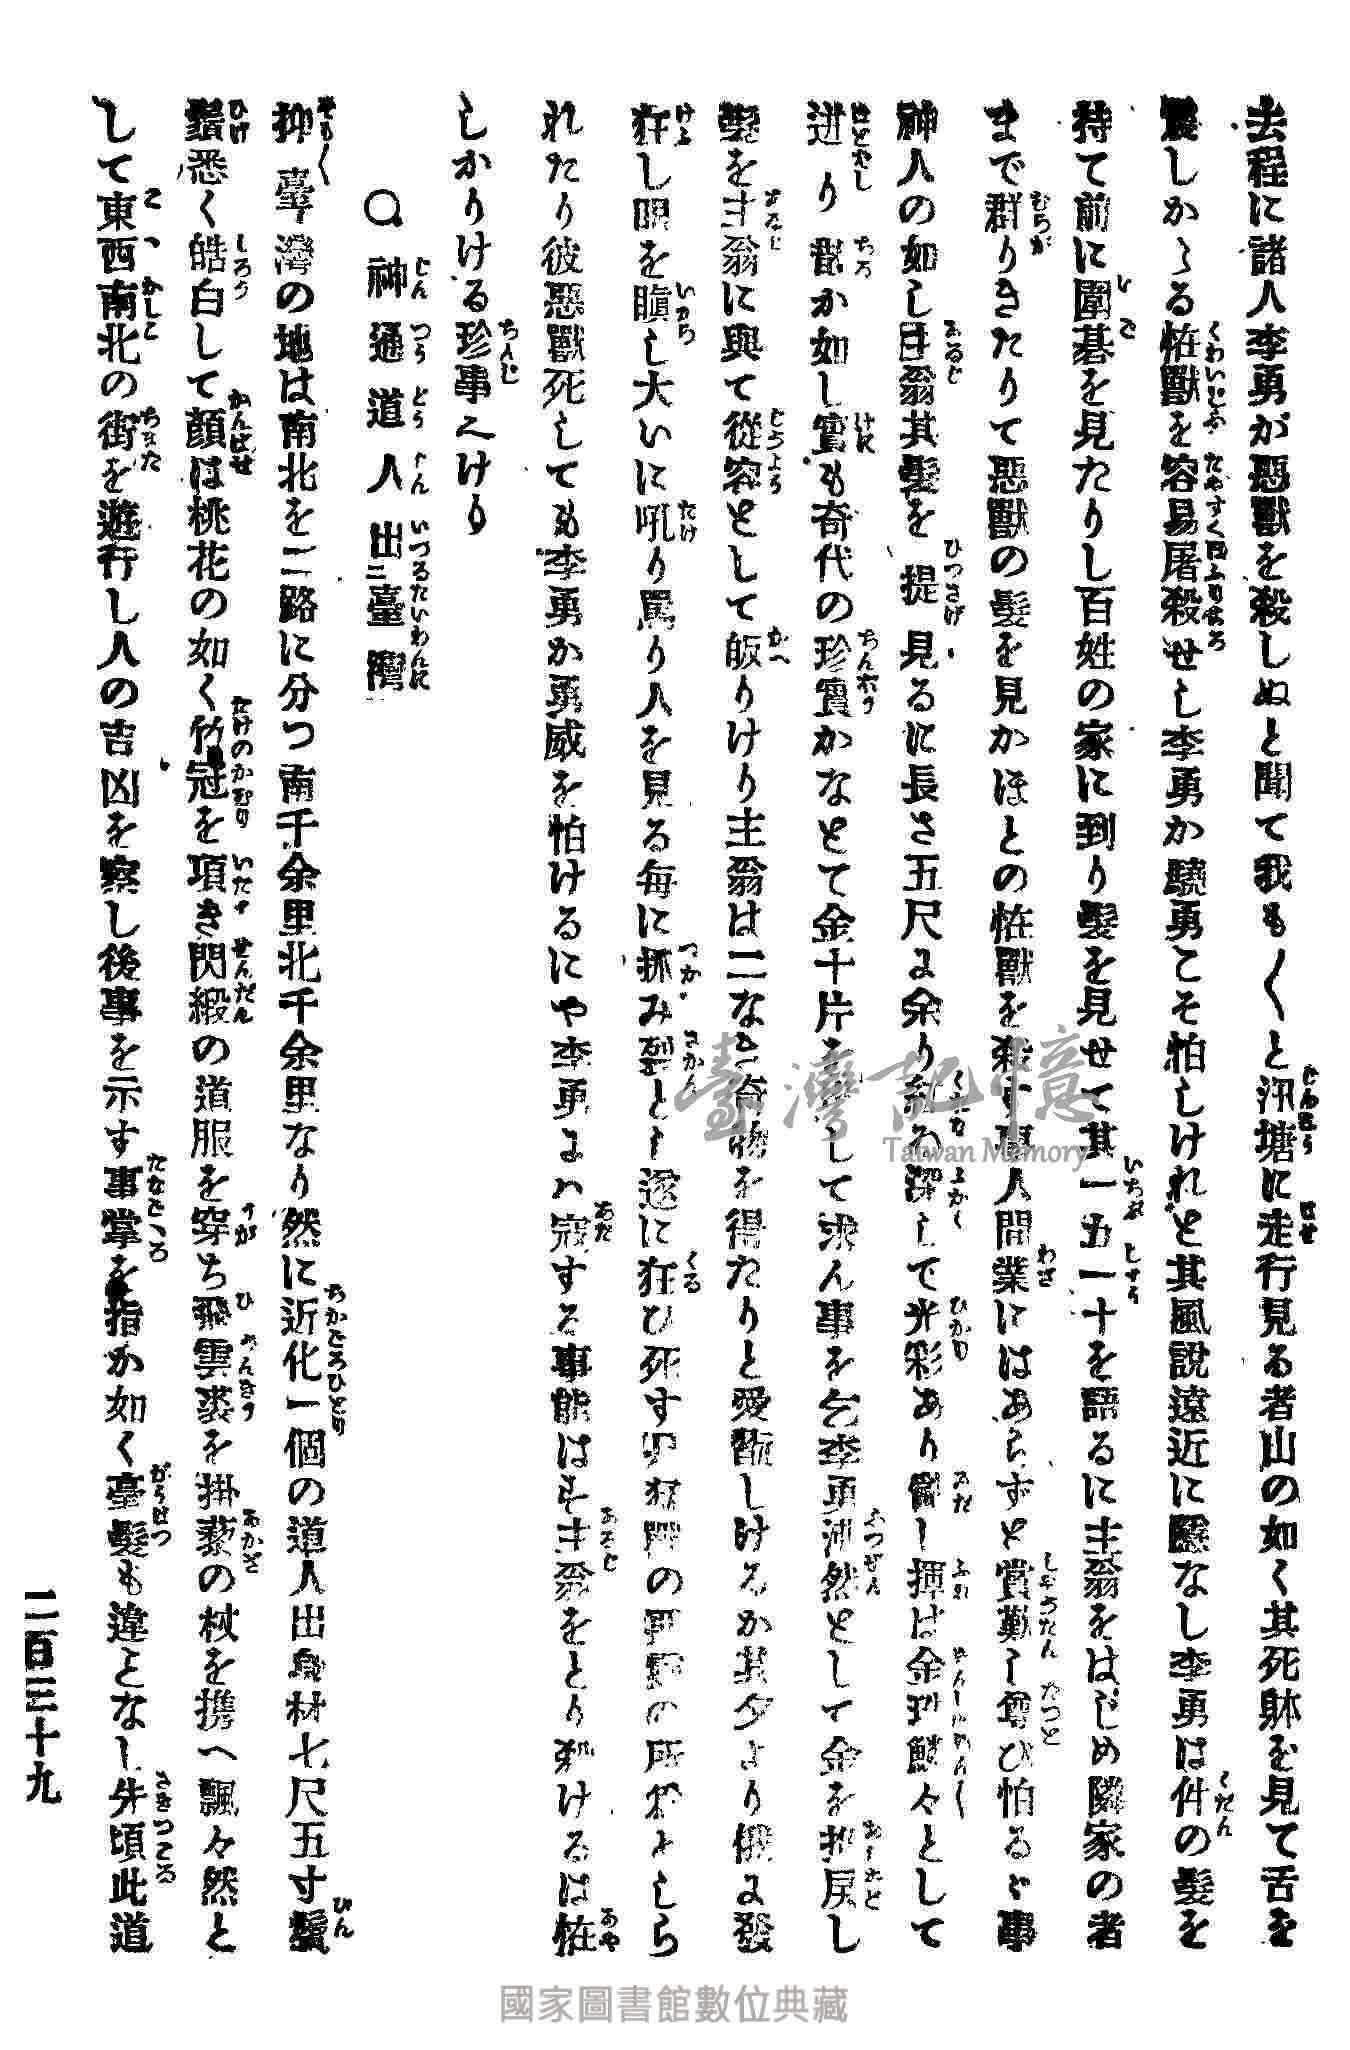 去程に諸人李勇が惡獸を殺しぬと聞て我も〱と汛塘に走行見る者山の如く其死躰を見て舌を
震しかゝる恠獸を容易屠殺せし李勇か驍勇こそ怕しけれと其風說遠近に隱なし李勇は件の髮を
持て前に圍碁を見たりし百姓の家に到り髮を見せて其一五一十を語るに主翁をはじめ隣家の者
まで群りきたりて惡獸の髮を見かほとの恠獸を殺す事人間業にはあらずと賞歎し尊び怕るゝ事
神人の如し主翁其髮を提見るに長さ五尺に余り深して光彩あり揮は金鱗々として
迸り か如し實も奇代の珍寶かなとて金十片を して求ん事を乞李勇沸然として金を推戻し
髮を主翁に與て從容として皈りけり主翁は二なき奇物を得たりと愛翫しけるか其夕より俄に發
狂し眼を瞋し大いに吼り罵り人を見る每に抓み裂とし遂に狂ひ死す の所爲としら
れたり彼惡獸死しても李勇か勇威を怕けるにや李勇には寇する事能はず主翁をとり殺けるは恠
しかりける珍事也けり
○神通道人出二臺灣一
抑臺灣の地は南北を二路に分つ南千余里北千余里なり然に近化一個の道人出身材七尺五寸鬢
鬚悉く皓白して顏は桃花の如く竹冠を項き閃緞の道服を穿ち飛雲裘を掛藜の杖を携へ飄々然と
して東西南北の街を遊行し人の吉凶を察し後事を示す事掌を指か如く毫髮も違となし先頃此道
二百三十九
臺灣記憶
Taiwan Memory
國家圖書館數位典藏